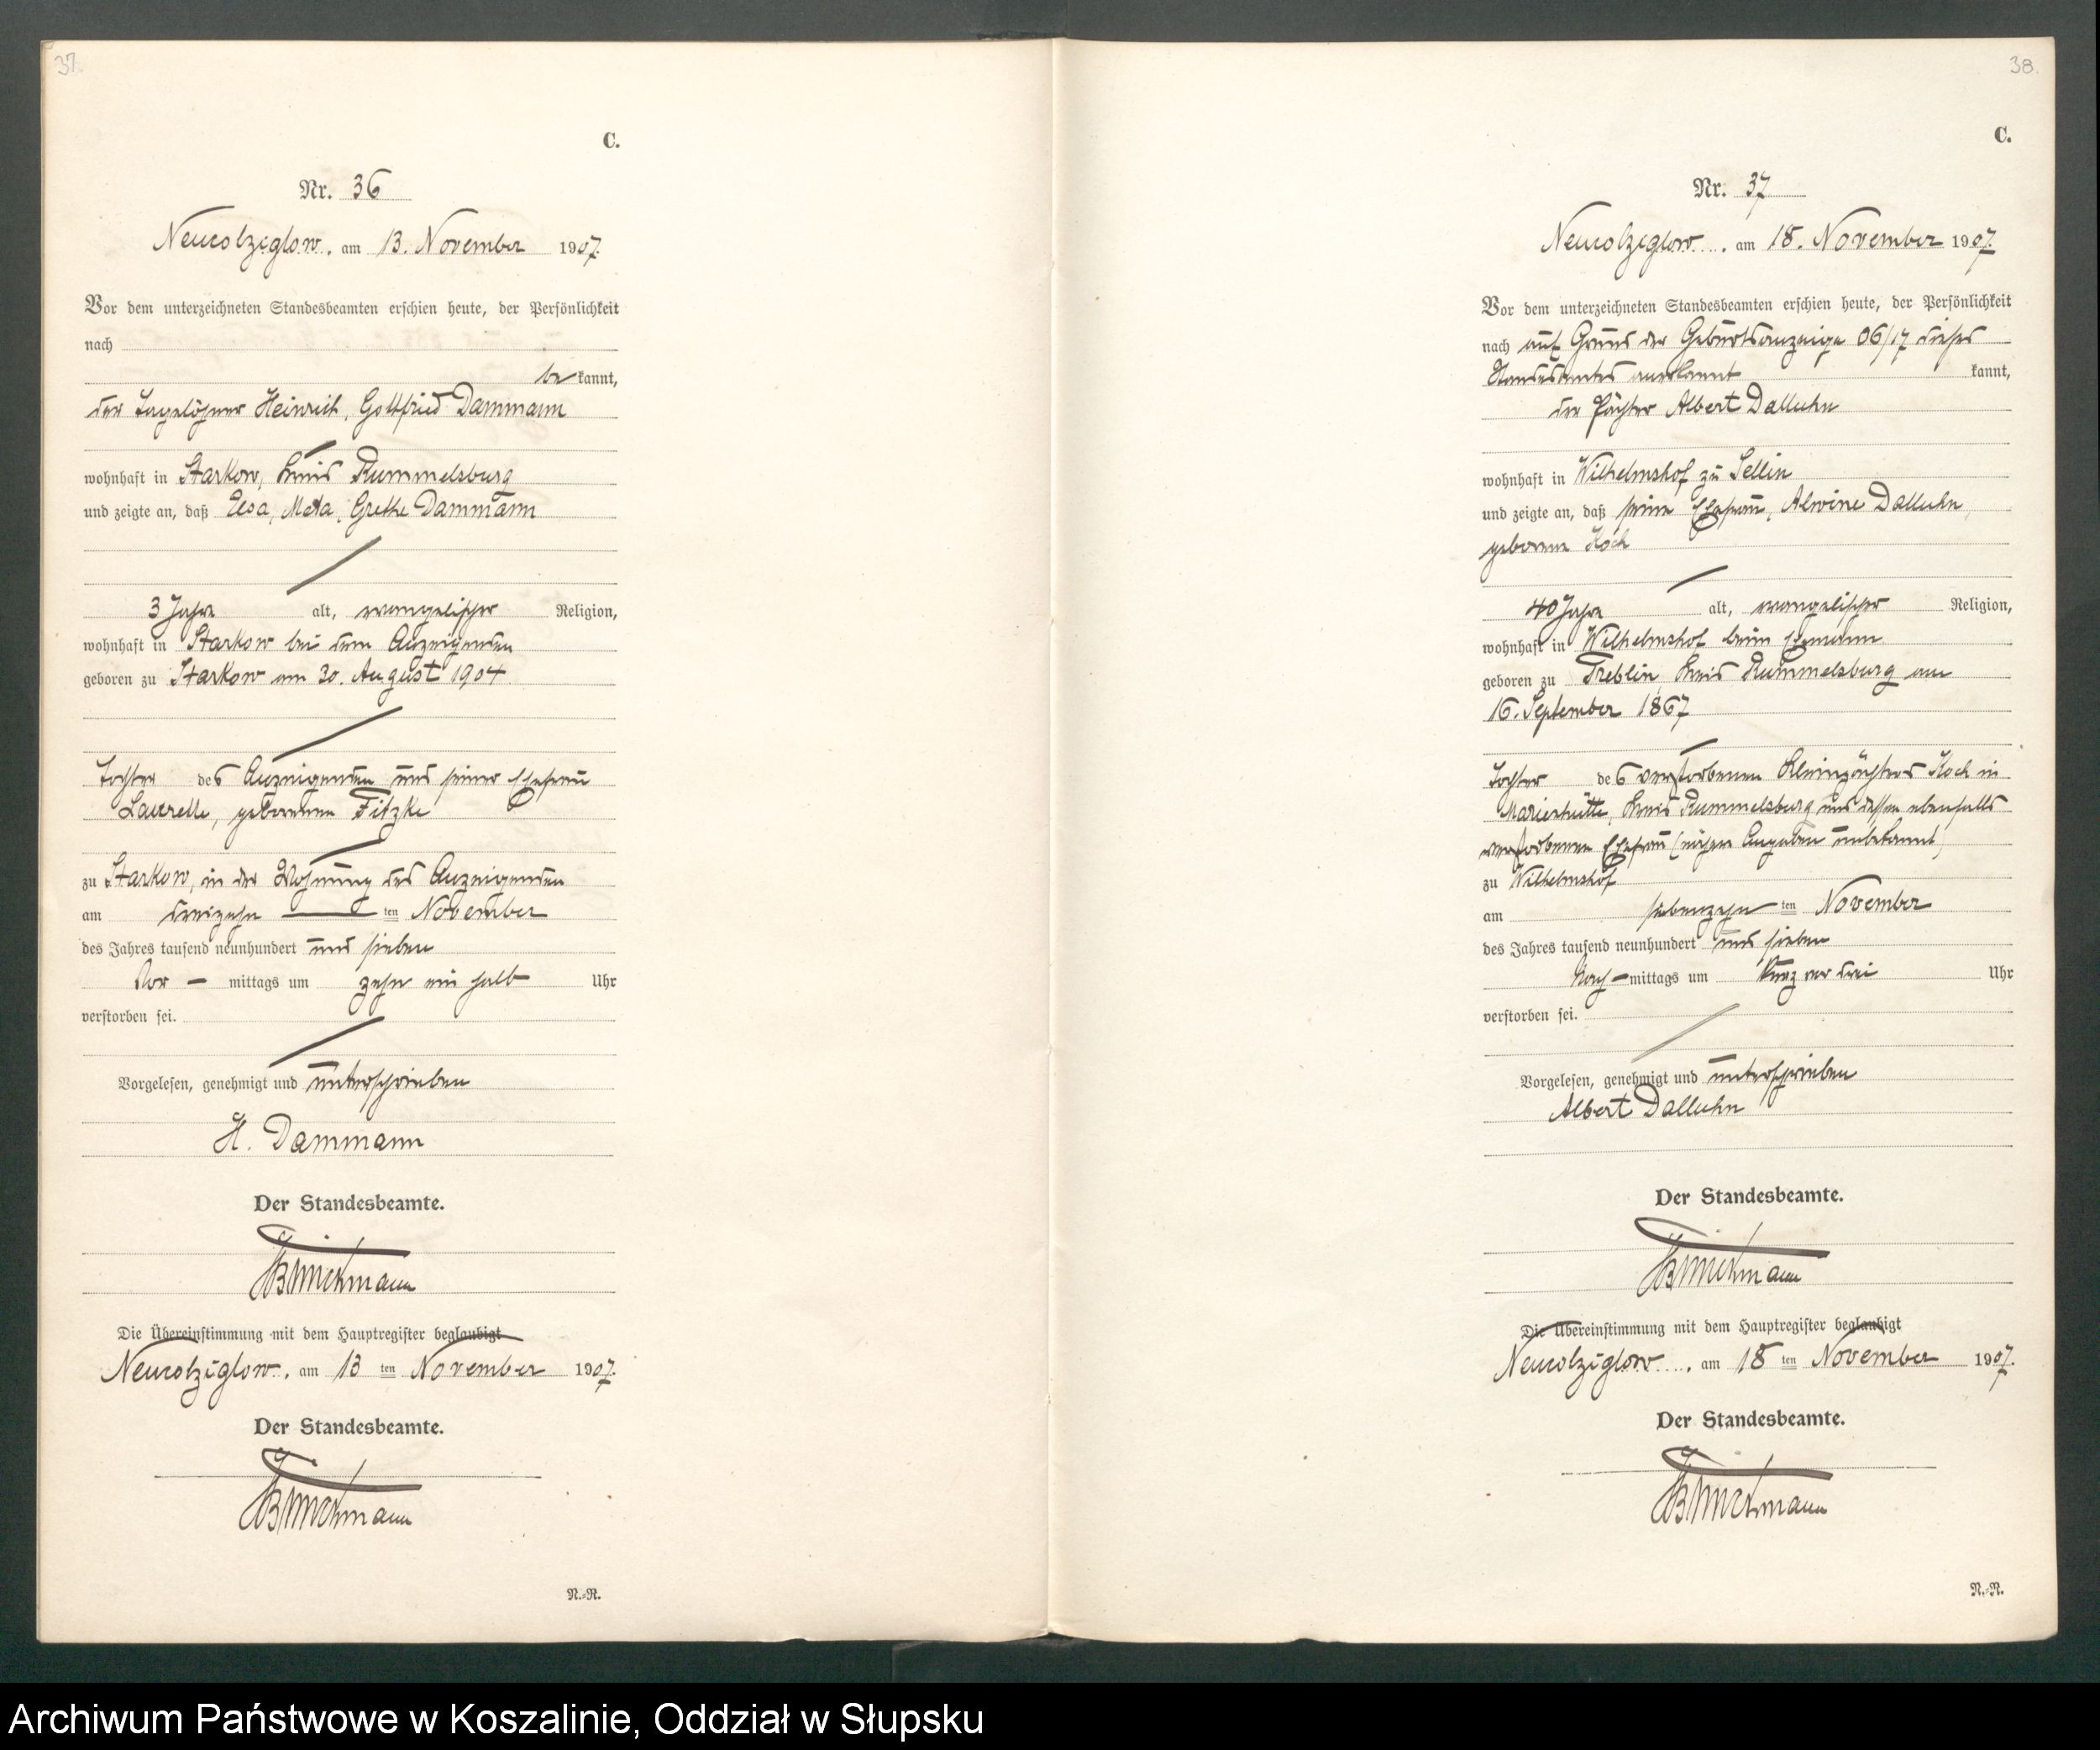 37.
C.
Nr. 36
Neukolziglow, am 13. November 1907.
Vor dem unterzeichneten Standesbeamten erschien heute, der Persönlichkeit
nach
be kannt,
der Tagelöhner Heinrich, Gottfried Dammann
wohnhaft in Starkow, Kreis Rummelsburg
und zeigte an, daß Elsa, Meta, Grethe Dammann
3 Jahre alt, evangelischer Religion,
wohnhaft in Starkow bei dem Anzeigenden
geboren zu Starkow am 30. August 1904
Tochter des Anzeigenden und seiner Ehefrau
geborenen Fitzke
zu Starkow, in der Wohnung des Anzeigenden
am dreizehn ten November
des Jahres tausend neunhundert und sieben
Vor - mittags um zehn ein halb Uhr
verstorben sei.
Vorgelesen, genehmigt und unterschrieben
H. Dammann
Der Standesbeamte.
Die Übereinstimmung mit dem Hauptregister beglaubigt
Neukolziglow, am 13 ten November 1907.
Der Standesbeamte.
N.-R.
38.
C.
Nr. 37
Neukolziglow, am 18. November 1907.
Vor dem unterzeichneten Standesbeamten erschien heute, der Persönlichkeit
nach auf Grund der Geburtsanzeige 06/17 dieses
Standesamtes anerkannt kannt,
der Pächter Albert Dalluhn
wohnhaft in Wilhelmshof zu Sellin
und zeigte an, daß seine Ehefrau, Alwine Dalluhn,
geborene Koch
40 Jahre alt, evangelischer Religion,
wohnhaft in Wilhelmshof beim Ehemann
geboren zu Treblin, Kreis Rummelsburg am
16. September 1867
Tochter des verstorbenen Kleinpächters Koch in
Marienhütte, Kreis Rummelsburg und dessen ebenfalls
verstorbenen Ehefrau (nähere Angaben unbekannt)
zu Wilhelmshof
am siebenzehn ten November
des Jahres tausend neunhundert und sieben
Nach - mittags um kurz vor drei Uhr
verstorben sei.
Vorgelesen, genehmigt und unterschrieben
Albert Dalluhn
Der Standesbeamte.
Die Übereinstimmung mit dem Hauptregister beglaubigt
Neukolziglow, am 18 ten November 1907.
Der Standesbeamte.
N.-R.
Archiwum Państwowe w Koszalinie, Oddział w Słupsku